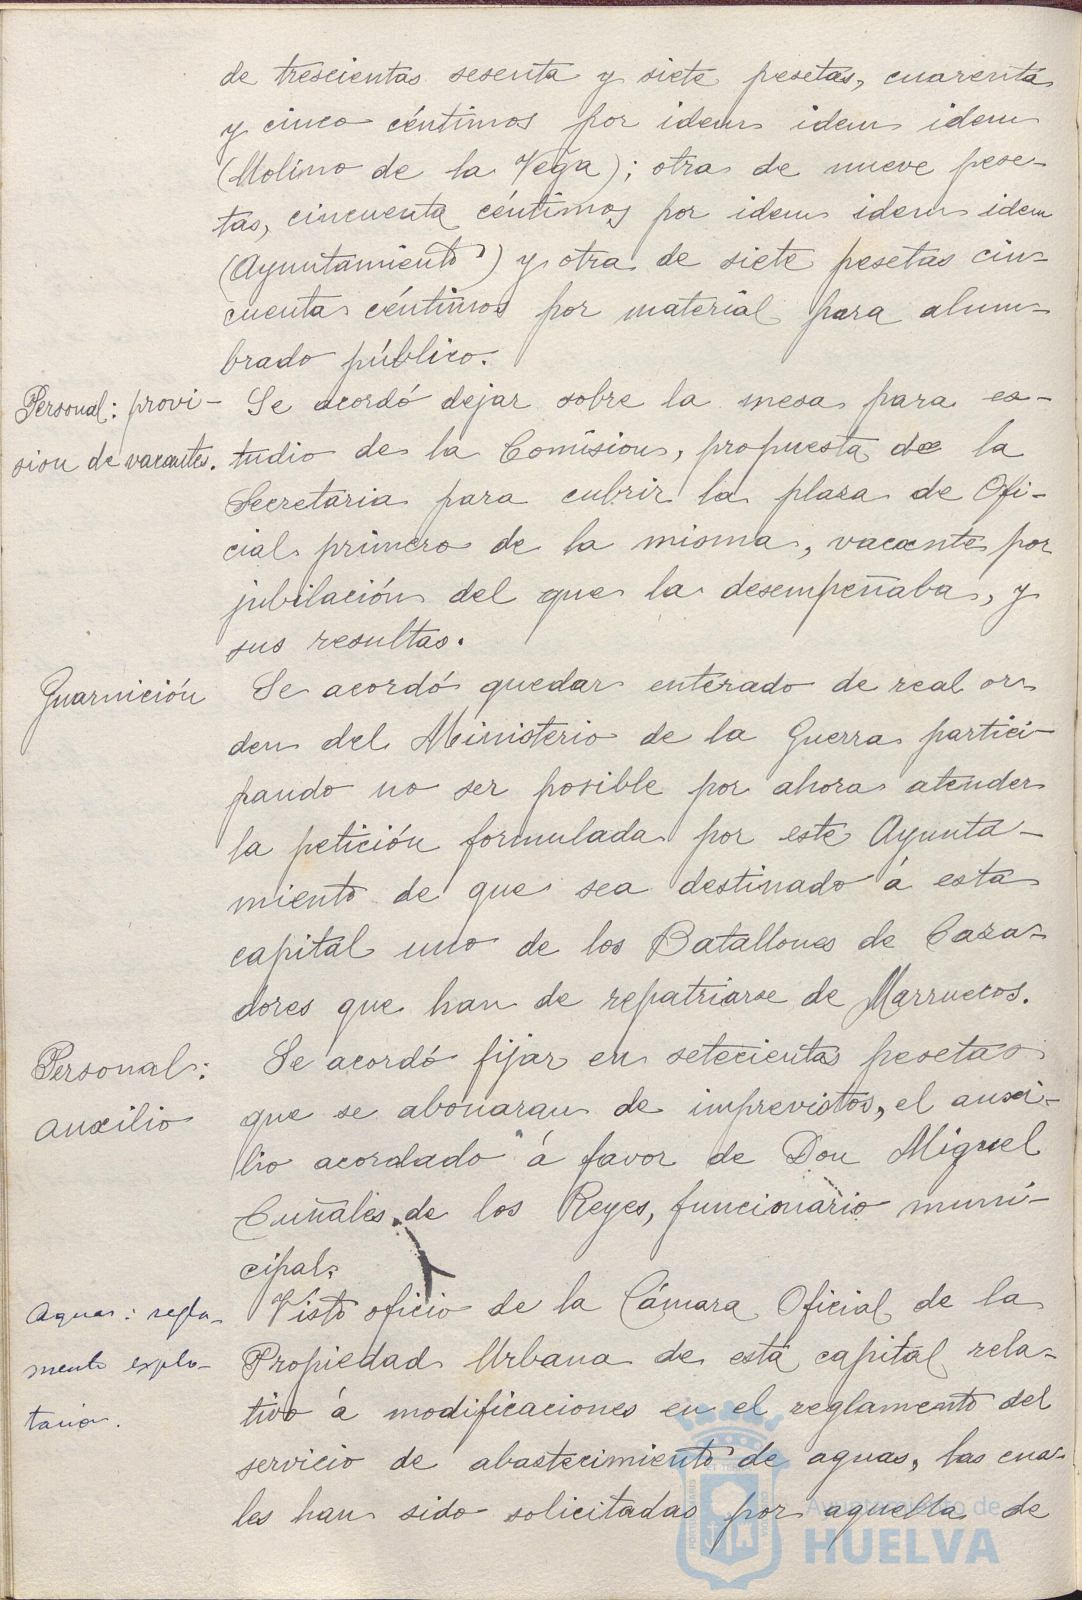 de trescientas sesenta y siete pesetas, cuarenta
y cinco céntimos por idem idem idem
(Molino de la Vega); otra de nueve pese-
tas, cincuenta céntimos por idem idem idem
(Ayuntamiento) y otra de siete pesetas cin-
cuenta céntimos por material para alum-
brado público.
Personal: provi-
sion de vacantes.
Se acordó dejar sobre la mesa para es-
tudio de la Comision, propuesta de la
Secretaria para cubrir la plaza de Ofi-
cial primero de la misma, vacante por
jubilación del que la desempeñaba, y
sus resultas.
Guarnición
Se acordó quedar enterado de real or-
den del Ministerio de la Guerra partici-
pando no ser posible por ahora atender
la petición formulada por este Ayunta-
miento de que sea destinado á esta
capital uno de los Batallones de Caza-
dores que han de repatriarse de Marruecos.
Personal:
auxilio
Se acordó fijar en setecientas pesetas
que se abonaran de imprevistos, el auxi-
lio acordado á favor de Don Miguel
Cuñales de los Reyes, funcionario muni-
cipal.
Aguas: regla-
mento explo-
tacion.
Visto oficio de la Cámara Oficial de la
Propiedad Urbana de esta capital rela-
tivo á modificaciones en el reglamento del
servicio de abastecimiento de aguas, las cua-
les han sido solicitadas por aquella de
Ayuntamiento de
HUELVA